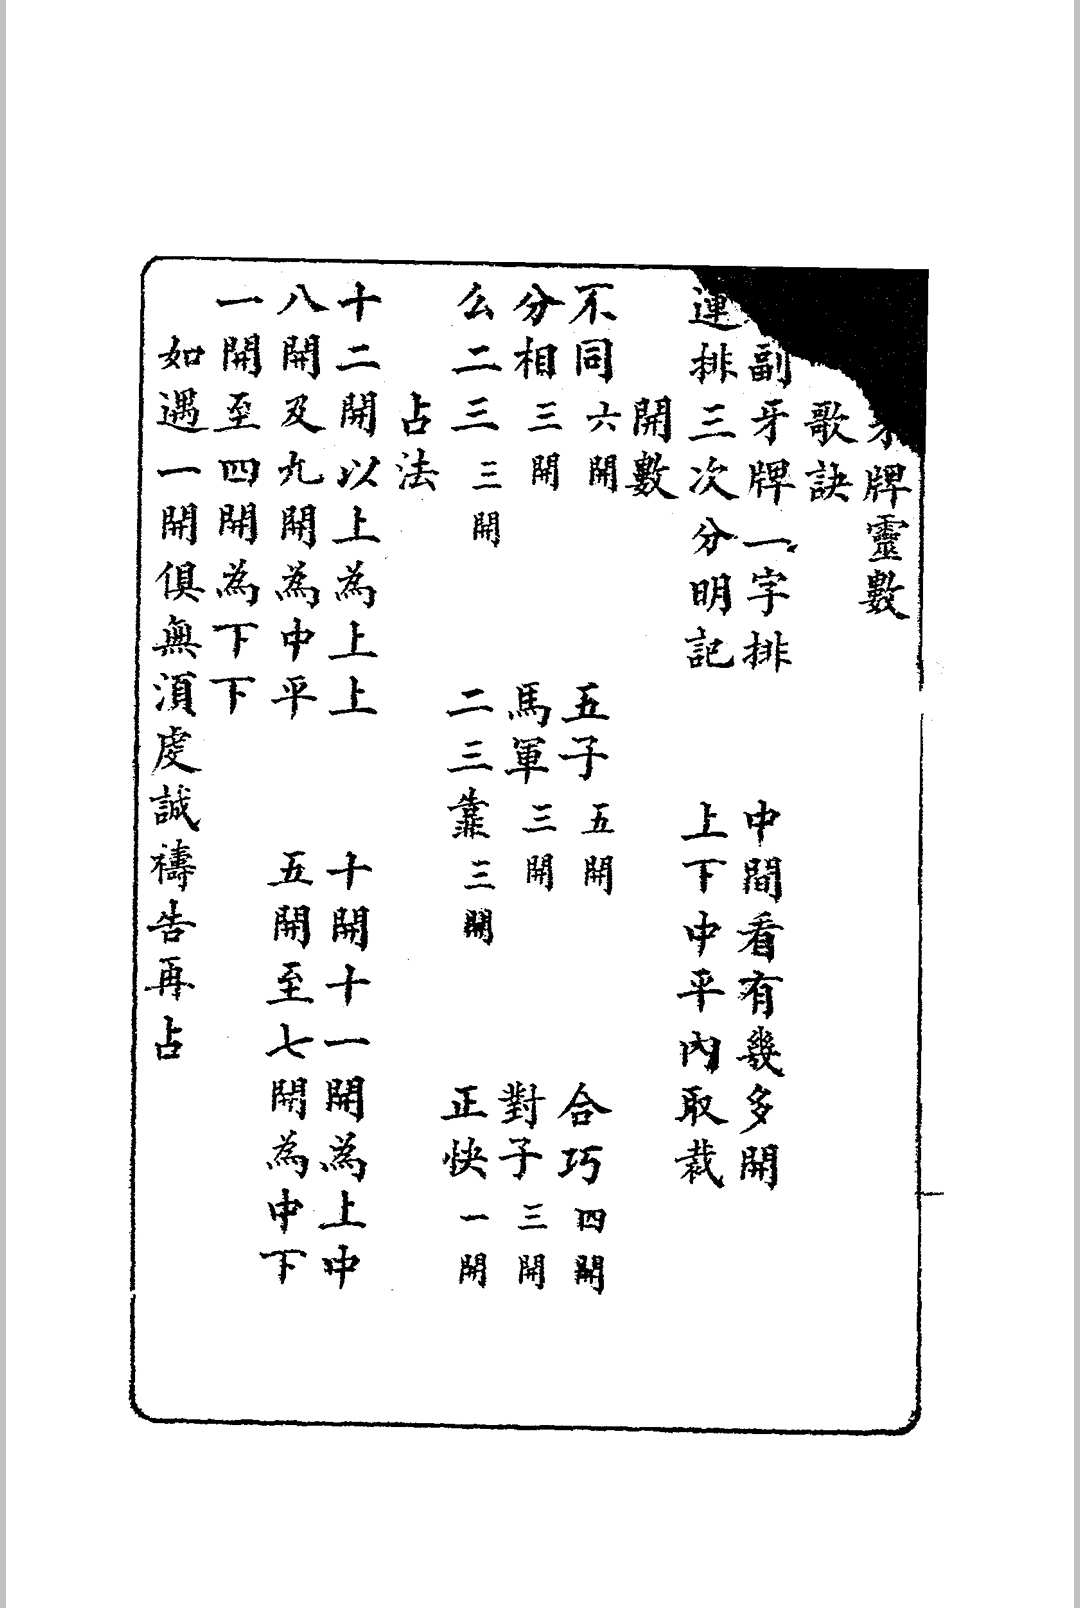 牙牌靈數
歌訣
副牙牌一字排　中間看有幾多開
連排三次分明記　上下中平內取裁
開數
不同六開　五子五開　合巧四開
分相三開　馬軍三開　對子三開
么二三三開　二三靠三開　正快一開
占法
十二開以上為上上　十開十一開為上中
八開及九開為中平　五開至七開為中下
一開至四開為下下
如遇一開俱無須虔誠禱告再占